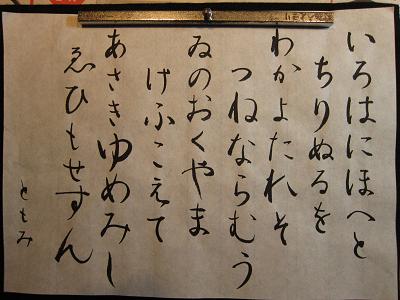 いろはにほへと
ちりぬるを
わかよたれそ
つねならむう
ゐのおくやま
けふこえて
あさきゆめみし
ゑひもせすん
ともみ